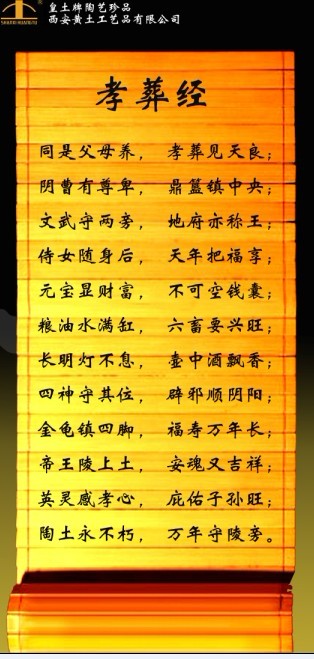 皇土牌陶艺珍品
西安黄土工艺品有限公司
孝葬经
同是父母养，孝葬见天良；
阴曹有尊卑，鼎簋镇中央；
文武守两旁，地府亦称王；
侍女随身后，天年把福享；
元宝显财富，不可空钱囊；
粮油水满缸，六畜要兴旺；
长明灯不息，壶中酒飘香；
四神守其位，辟邪顺阴阳；
金龟镇四脚，福寿万年长；
帝王陵上土，安魂又吉祥；
英灵感孝心，庇佑子孙旺；
陶土永不朽，万年守陵旁。